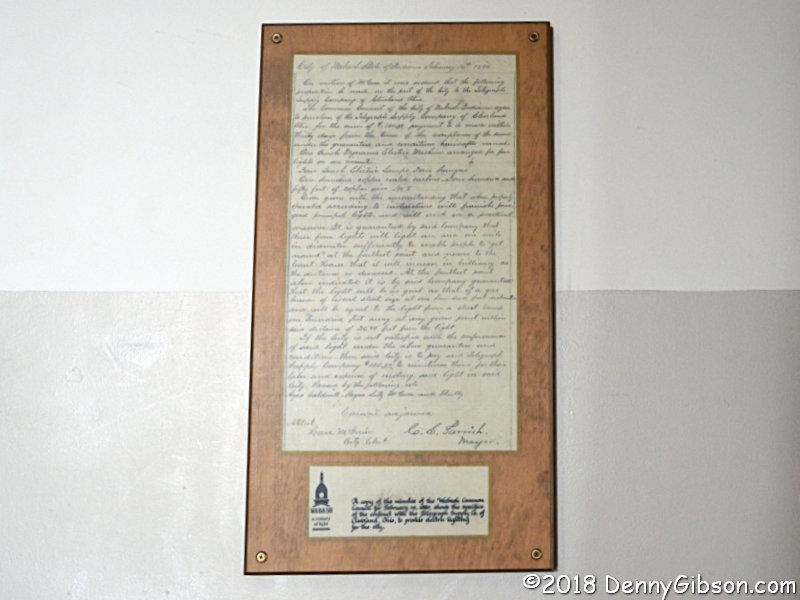 City of Wabash State of Indiana February 14th 1880
On motion of McCrea it was ordered that the following
proposition be made on the part of the City to the Telegraph
Supply Company of Cleveland Ohio.
The Common Council of the City of Wabash Indiana agree
to purchase of the Telegraph Supply Company of Cleveland
Ohio for the sum of payment to be made within
thirty days from the time of the acceptance of the same
under the guarantee and conditions hereinafter named.
One Brush Dynamo Electric Machine arranged for four
lights on one circuit
Four Brush Electric Lamps Four hangers
One hundred copper coated carbons Four hundred and
fifty feet of copper wire No 8
Ever given with the understanding that when properly
operated according to instructions will furnish four
good powerful lights and will work in a practical
manner. It is guaranteed by said Company that
these four lights will light an area one mile
in diameter sufficiently to enable people to "get
around" at the farthest point and nearer to the
Court House that it will increase in brilliancy as
the distance is decreased. At the farthest point
above indicated it is by said Company guaranteed
that the light will be as good as that of a gas
burner of usual street size at one hundred feet distant
and will be equal to the light from a street lamp
one hundred feet away at any given point within
said distance of 2640 feet from the light.
If the City is not satisfied with the performance
of said light under the above guarantee and
conditions then said City is to pay said Telegraph
Supply Company to reimburse them for their
labor and expense of erecting said light in said
City. Passed by the following vote
Ayes Caldwell, McCrea and
Council adjourned
Attest
City Clerk
C. E. Parrish.
Mayor.
WABASH
a century
of light
A copy of the minutes of the Wabash Common
Council for February 14, 1880, shows the specifics
of the contract with the Telegraph Supply Co. of
Cleveland, Ohio, to provide electric lighting
for the city.
©2018 DennyGibson.com